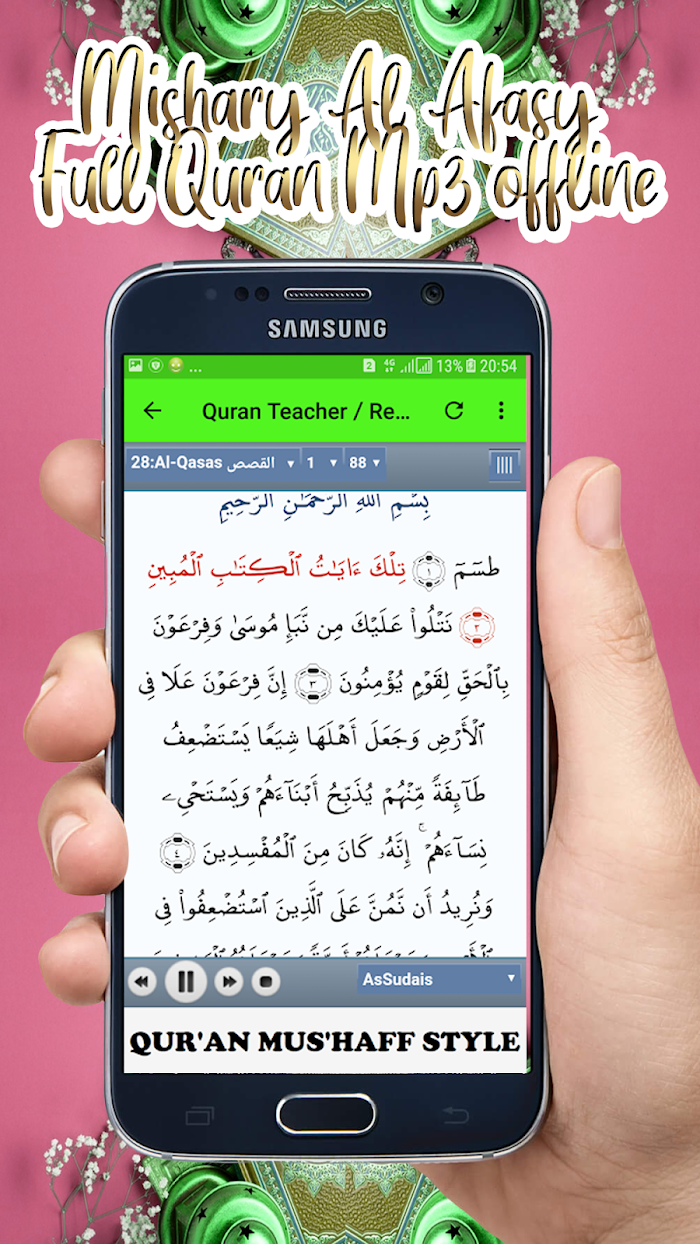 Mishary Al Afasy
Full Quran Mp3 offline
SAMSUNG
... 2 4G 13% 20:54
Quran Teacher / Re...
28:Al-Qasas القصص 1 88
بِسْمِ اللهِ الرَّحْمَٰنِ الرَّحِيمِ
طسٓمٓ ١ تِلْكَ ءَايَٰتُ ٱلْكِتَٰبِ ٱلْمُبِينِ
٢ نَتْلُوا۟ عَلَيْكَ مِن نَّبَإِ مُوسَىٰ وَفِرْعَوْنَ
بِٱلْحَقِّ لِقَوْمٍ يُؤْمِنُونَ ٣ إِنَّ فِرْعَوْنَ عَلَا فِى
ٱلْأَرْضِ وَجَعَلَ أَهْلَهَا شِيَعًا يَسْتَضْعِفُ
طَآئِفَةً مِّنْهُمْ يُذَبِّحُ أَبْنَآءَهُمْ وَيَسْتَحْىِۦ
نِسَآءَهُمْ ۚ إِنَّهُۥ كَانَ مِنَ ٱلْمُفْسِدِينَ ٤
وَنُرِيدُ أَن نَّمُنَّ عَلَى ٱلَّذِينَ ٱسْتُضْعِفُوا۟ فِى
AsSudais
QUR'AN MUS'HAFF STYLE